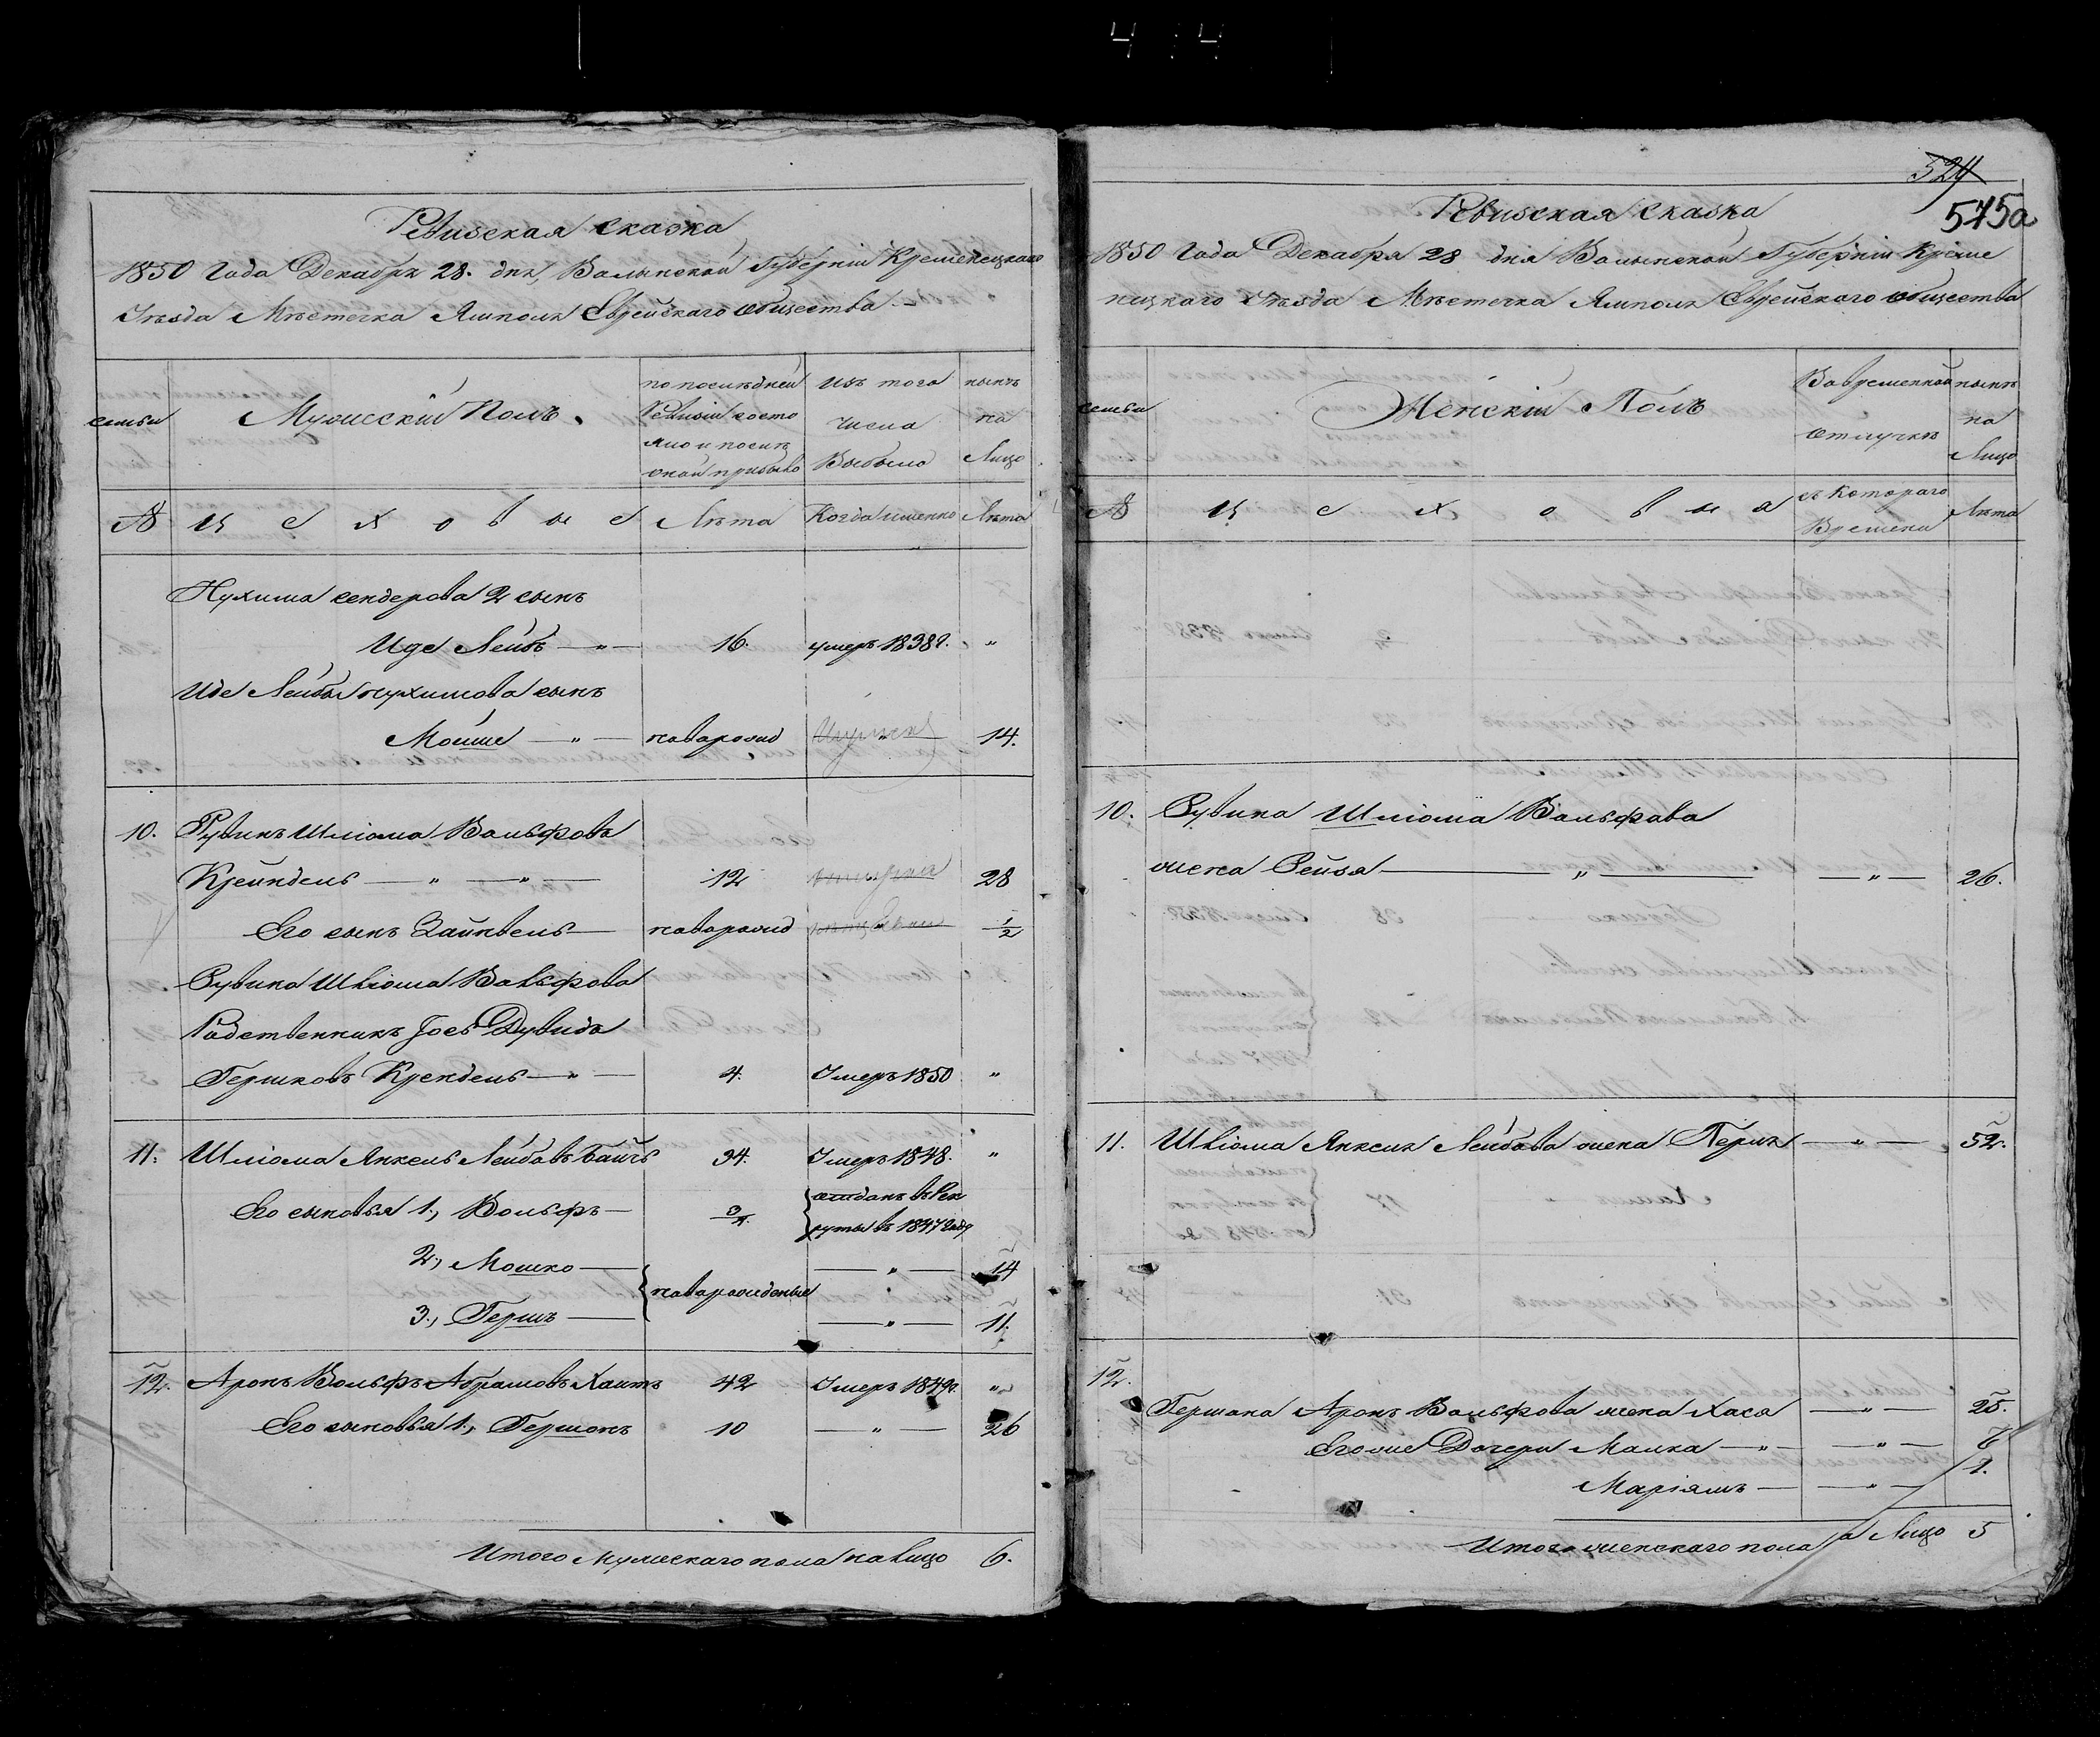 Ревизская сказка
1850 года Декабря 28. дня, Валынской Губерніи Кременецкаго
Уѣзда Мѣстечка Ямполя Еврейскаго общества
семьи
Мужескій Полъ.
по послѣдней
Ревизіи состо
яло и послѣ
оной прибыло
изъ того
числа
Выбыло
нынѣ
на
Лицо
№
Исховые
Лѣта
Когда именно
Лѣта
Нухима сендерова 2 сынъ
Иде Лейбъ — " — 16. умеръ 1838г. "
Иде Лейбы нухимова сынъ
Мойше — " — наварожд 14.
10. Рувинъ Шліома Вольфовъ
Крейндель — " — " — 12 28
Его сынъ Зайнвель — наварожд 1/2
Рувина Шліома Вольфова
Родственникъ Іосъ Дувидъ
Гершковъ Крендель — " — 4. Умеръ 1850 "
11. Шліома Янкель Лейбовъ Байчъ 34. Умеръ 1848. "
Его сыновья 1., Вольфъ — 3/4. отданъ въ Рек
руты въ 1847 году
2., Мошко — — " — 14
наварожденые
3., Гершъ — — " — 11.
12. Аронъ Вольфъ Абрамовъ Хаитъ 42 Умеръ 1849г. "
Его сыновья 1., Гершонъ 10 — " — 26
Итого мужескаго пола на Лицо 6.
524
575а
Ревизская сказка
1850 года Декабря 28 дня Валынской Губерніи Креме
нецкаго Уѣзда Мѣстечка Ямполя Еврейскаго общества
семьи
Женскій Полъ
Вовременной
отлучкѣ
нынѣ
на
Лицо
№
Исховыя
съ Котораго
Времени
Лѣта
10. Рувина Шліома Вольфова
жена Рейзя — " — — " — 26.
11. Шліома Янкеля Лейбова жена Перля — " — 52.
12.
Гершона Аронъ Вольфова жена Хася — " — 25.
Егоже Дочери Малка — " — — " — 6
Маріямъ — — " — 1.
Итого женскаго пола на Лицо 5